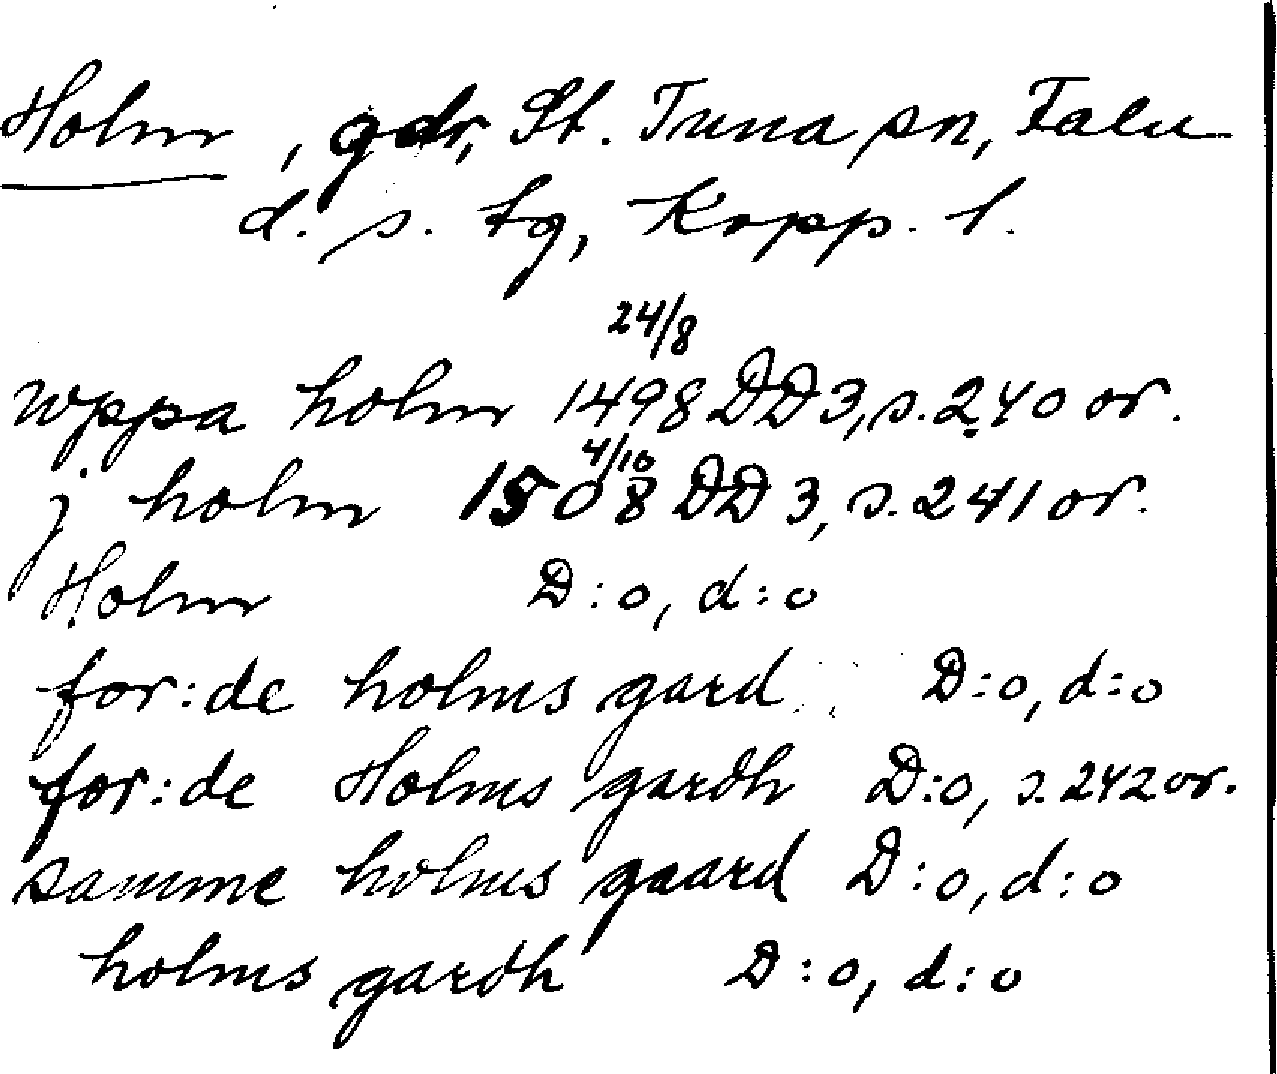 Holm, gdr, St. Tuna sn, Falu
d. s. tg, Kopp. l.
24/8
wppa holm 1498 DD 3, s. 240 or.
4/10
j holm 1508 DD 3, s. 241 or.
Holm D:o, d:o
for:de holms gard D:o, d:o
for:de Holms gardh D:o, s. 242 or.
samme holms gaard D:o, d:o
holms gardh D:o, d:o